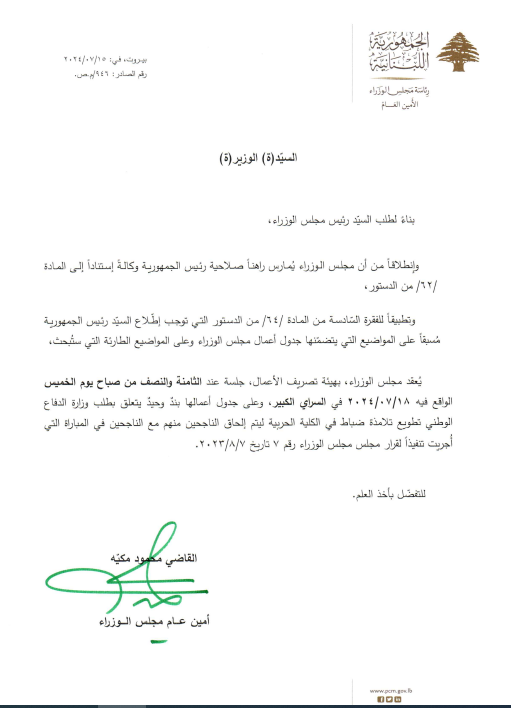 الجمهورية
اللبنانية
رئاسة مجلس الوزراء
الأمين العام
بيروت، في: ٢٠٢٤/٠٧/١٥
رقم الصادر: ٩٤٦/م.ص.
السيّد(ة) الوزير(ة)
بناءً لطلب السيّد رئيس مجلس الوزراء،
وإنطلاقاً من أن مجلس الوزراء يُمارس راهناً صلاحية رئيس الجمهورية وكالةً إستناداً إلى المادة
/٦٢/ من الدستور،
وتطبيقاً للفقرة السّادسة من المادة /٦٤/ من الدستور التي توجب إطّلاع السيّد رئيس الجمهورية
مُسبقاً على المواضيع التي يتضمّنها جدول أعمال مجلس الوزراء وعلى المواضيع الطارئة التي ستُبحث،
يُعقد مجلس الوزراء، بهيئة تصريف الأعمال، جلسة عند الثامنة والنصف من صباح يوم الخميس
الواقع فيه ٢٠٢٤/٠٧/١٨ في السراي الكبير، وعلى جدول أعمالها بندٌ وحيدٌ يتعلق بطلب وزارة الدفاع
الوطني تطويع تلامذة ضباط في الكلية الحربية ليتم إلحاق الناجحين منهم مع الناجحين في المباراة التي
أُجريت تنفيذاً لقرار مجلس مجلس الوزراء رقم ٧ تاريخ ٢٠٢٣/٨/٧.
للتفضّل بأخذ العلم.
القاضي محمود مكيّه
أمين عام مجلس الوزراء
www.pcm.gov.lb